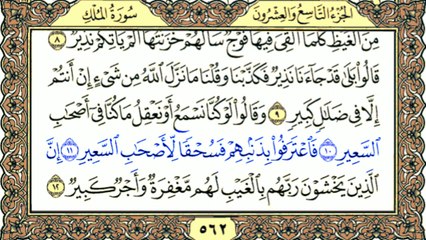 الجزء التاسع والعشرون
سورة الملك
مِنَ الْغَيْظِ كُلَّمَا أُلْقِيَ فِيهَا فَوْجٌ سَأَلَهُمْ خَزَنَتُهَا أَلَمْ يَأْتِكُمْ نَذِيرٌ ٨
قَالُوا بَلَىٰ قَدْ جَاءَنَا نَذِيرٌ فَكَذَّبْنَا وَقُلْنَا مَا نَزَّلَ اللَّهُ مِنْ شَيْءٍ إِنْ أَنْتُمْ
إِلَّا فِي ضَلَالٍ كَبِيرٍ ٩ وَقَالُوا لَوْ كُنَّا نَسْمَعُ أَوْ نَعْقِلُ مَا كُنَّا فِي أَصْحَابِ
السَّعِيرِ ١٠ فَاعْتَرَفُوا بِذَنْبِهِمْ فَسُحْقًا لِأَصْحَابِ السَّعِيرِ ١١ إِنَّ
الَّذِينَ يَخْشَوْنَ رَبَّهُمْ بِالْغَيْبِ لَهُمْ مَغْفِرَةٌ وَأَجْرٌ كَبِيرٌ ١٢
٥٦٢